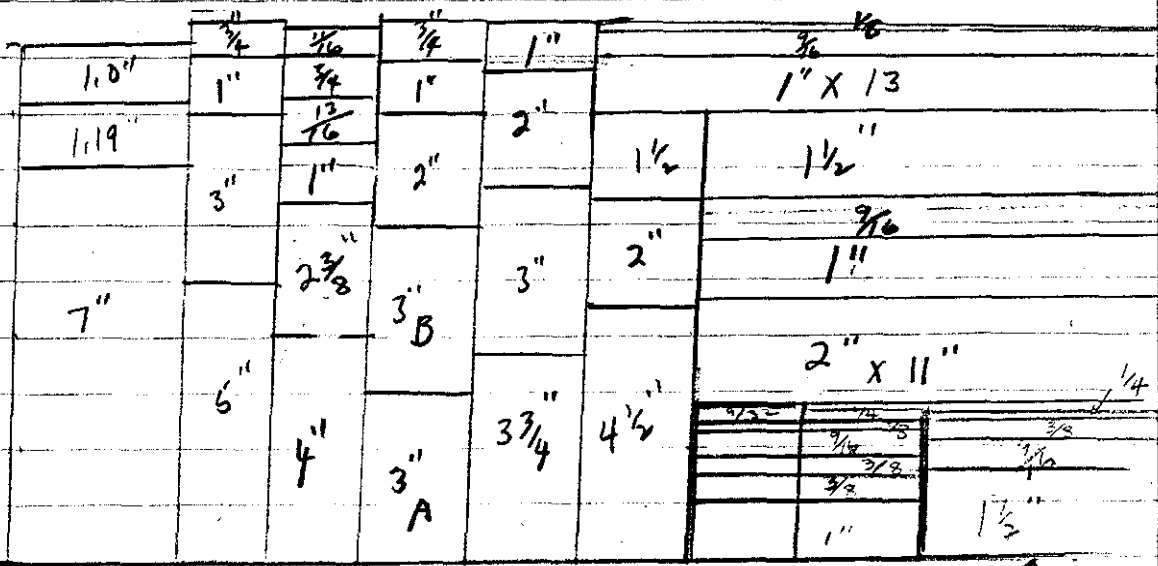 3/4"
1"
3"
1.0"
1.19"
7"
11/16
3/4
13/16
1"
2 3/8"
4"
3/4"
1"
2"
3" B
3" A
1"
2"
3"
3 3/4"
1 1/2
2"
4 1/2"
1/8
9/16
1" X 13
1 1/2"
9/16
1"
2" X 11"
1/4
9/32
1/4
1/8
9/16
3/8
3/8
1"
3/8
1 1/2"